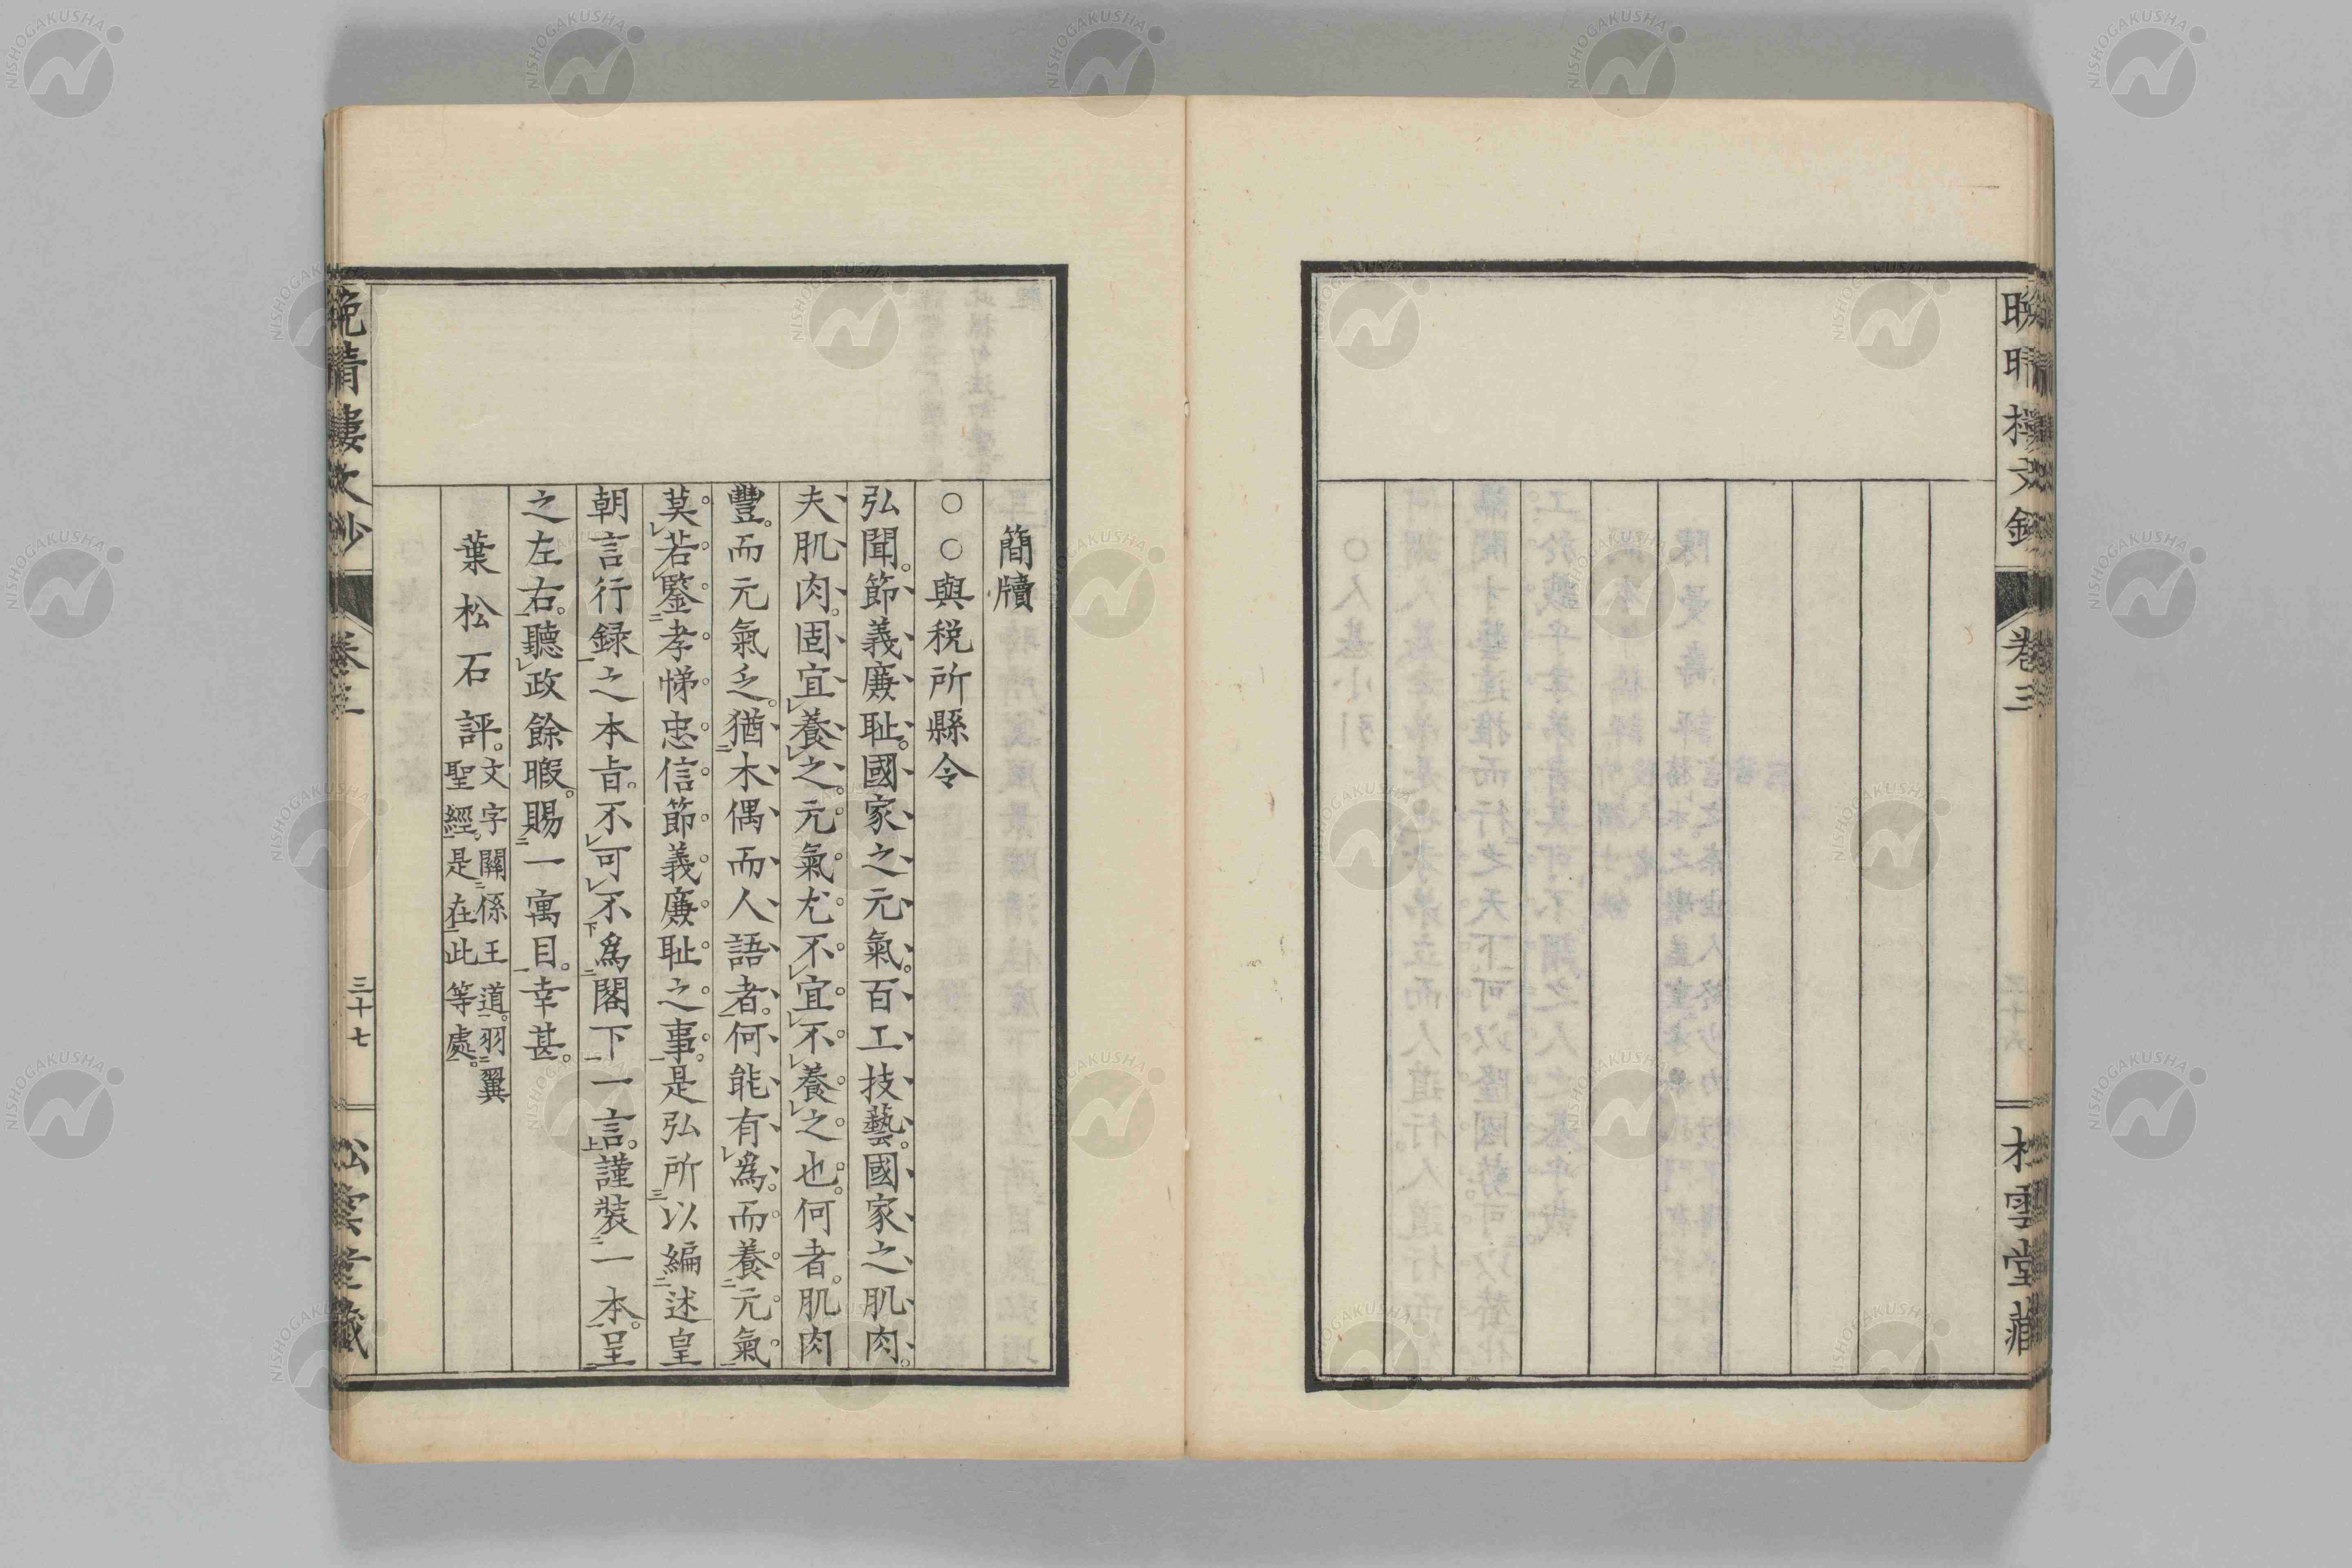 卷三
松雲堂藏
簡牘
○○與税所縣令
弘聞。節義廉耻。國家之元氣。百工技藝。國家之肌肉。
夫肌肉。固宜養之。元氣尤不宜不養之也。何者。肌肉
豐。而元氣乏。猶木偶而人語者。何能有爲。而養元氣
莫若鑒孝悌忠信節義廉耻之事。是弘所以編述皇
朝言行録之本旨。不可不爲閣下一言。謹裝一本。呈
之左右。聽政餘暇。賜一寓目。幸甚。
葉松石評。文字關係王道。羽翼
聖經。是在此等處。
晩晴樓文鈔
卷三
三十七
松雲堂藏